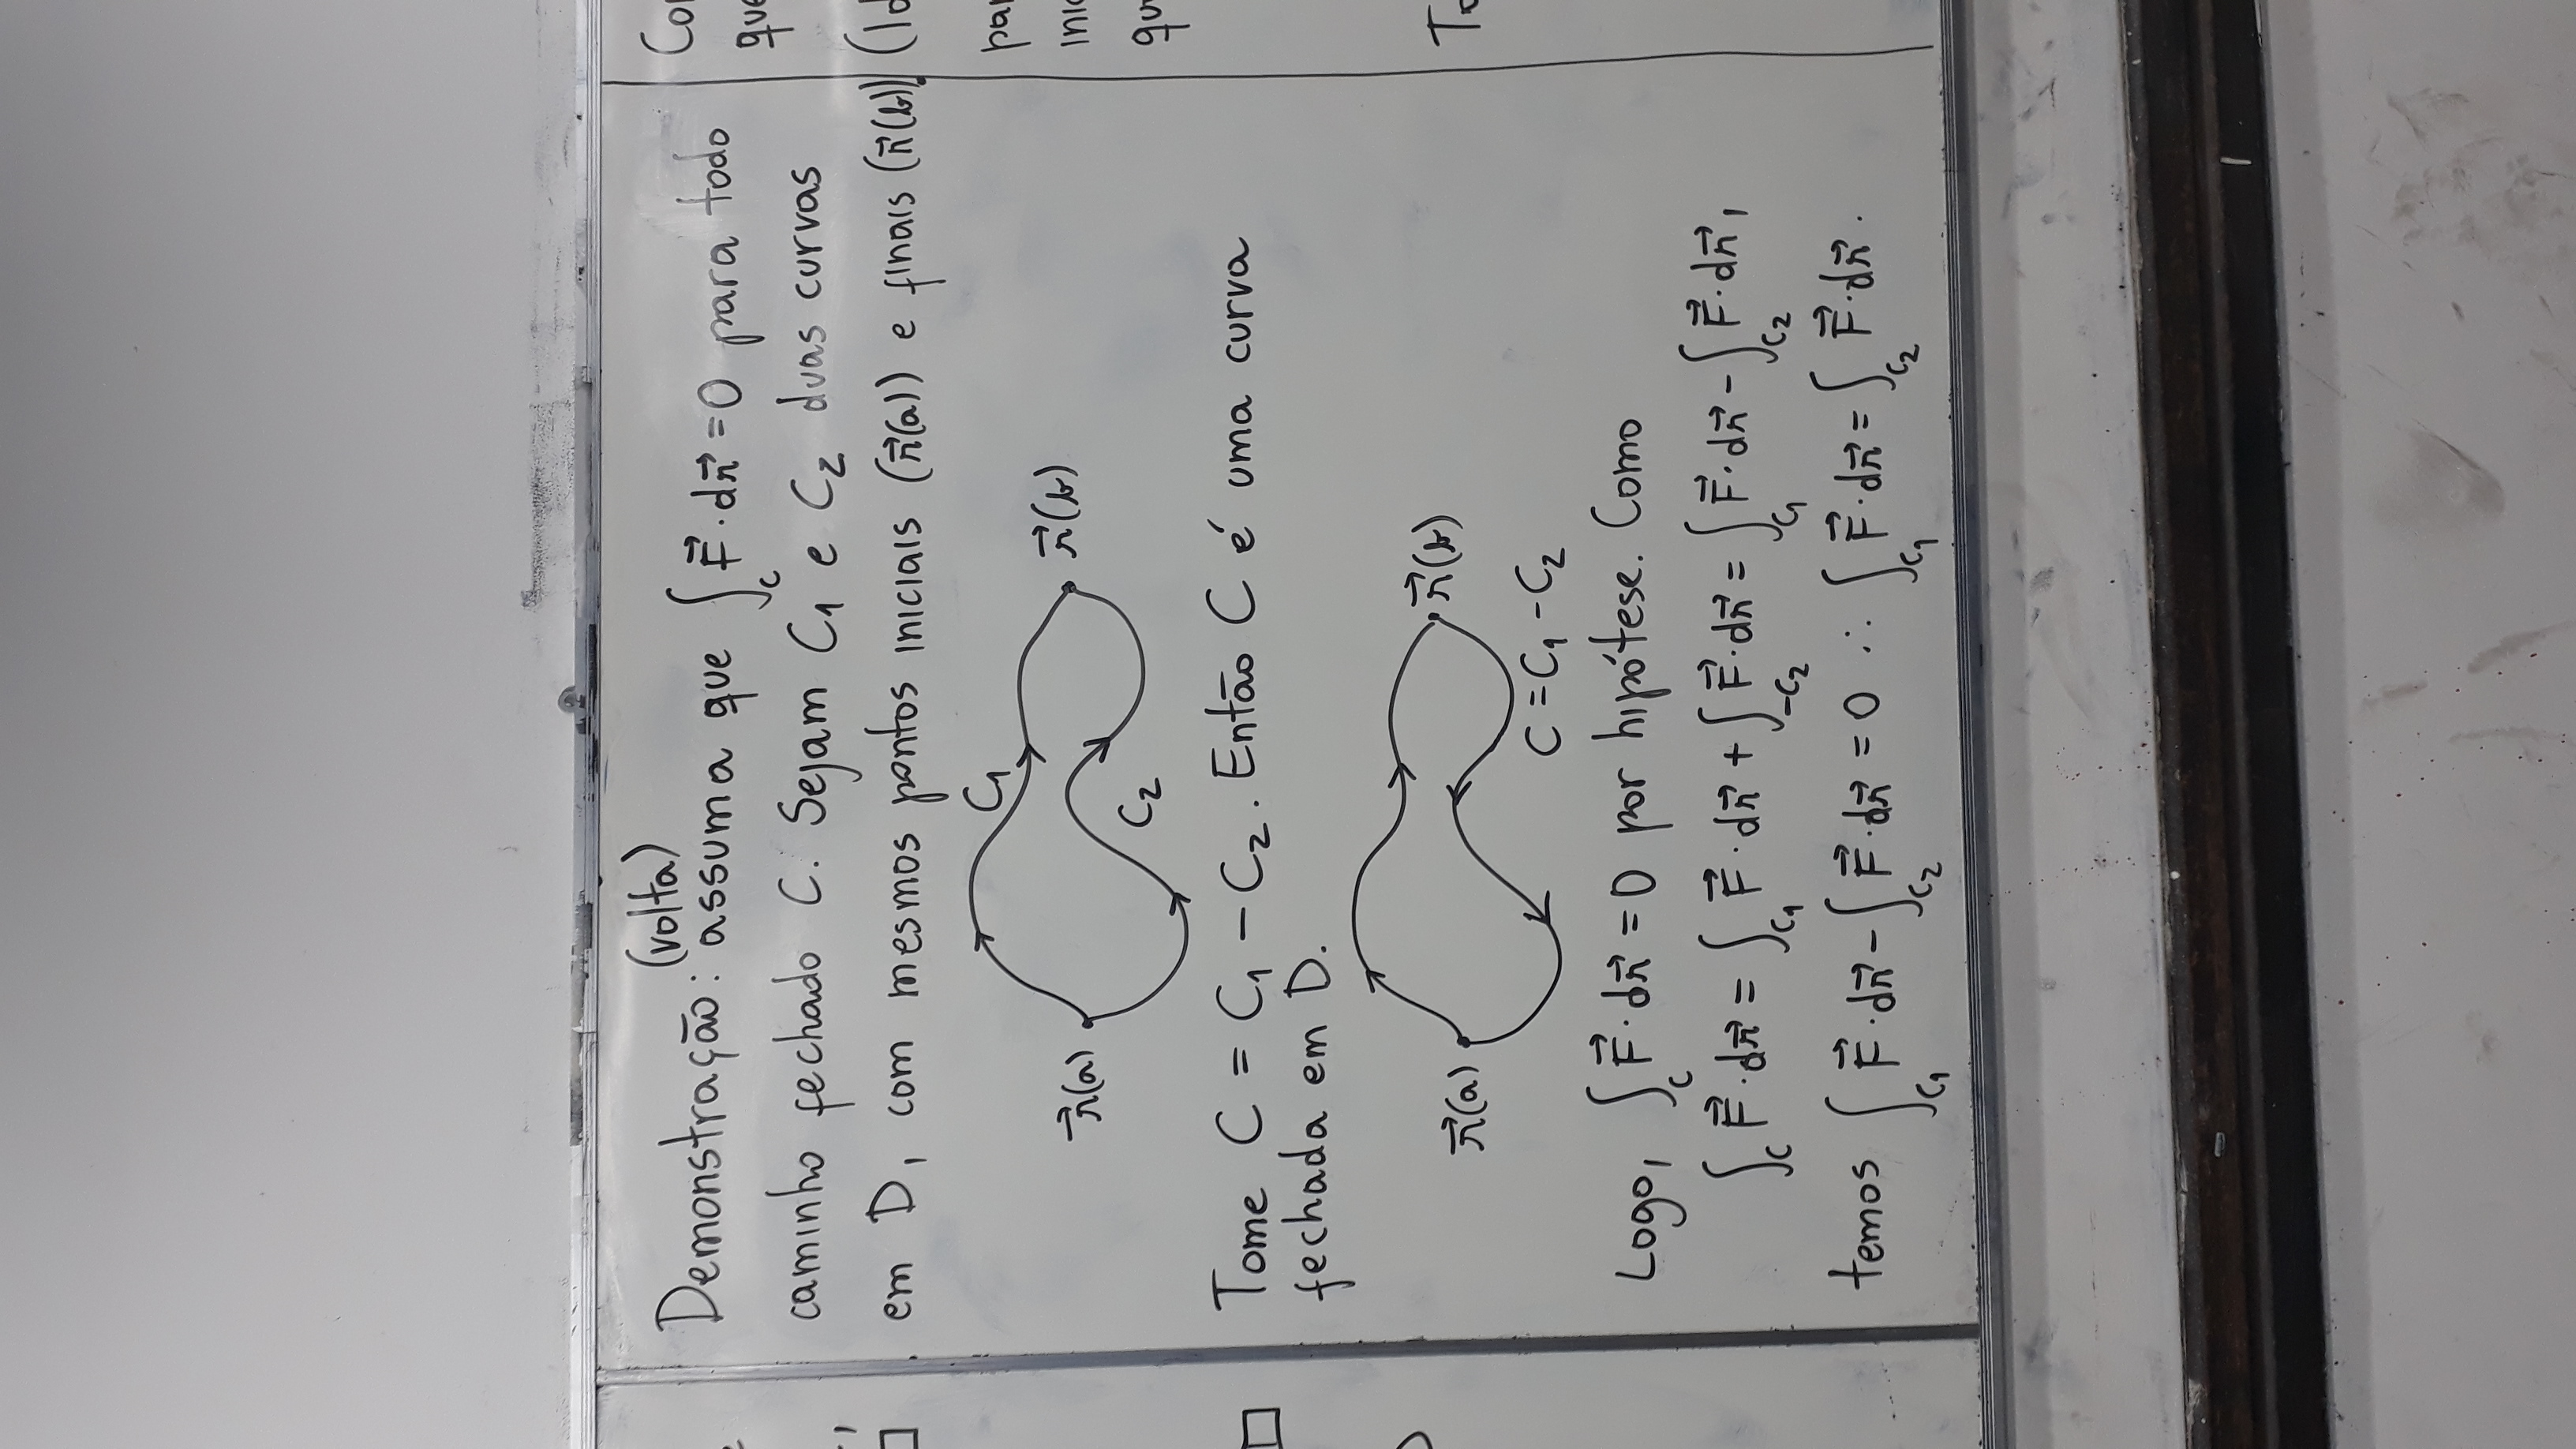 (volta)
Demonstração: assuma que ∫_C F⃗·dr⃗ = 0 para todo
caminho fechado C. Sejam C₁ e C₂ duas curvas
em D, com mesmos pontos iniciais (r⃗(a)) e finais (r⃗(b)).
C₁
r⃗(a)
r⃗(b)
C₂
Tome C = C₁ - C₂. Então C é uma curva
fechada em D.
r⃗(a)
r⃗(b)
C = C₁ - C₂
Logo, ∫_C F⃗·dr⃗ = 0 por hipótese. Como
∫_C F⃗·dr⃗ = ∫_C₁ F⃗·dr⃗ + ∫_-C₂ F⃗·dr⃗ = ∫_C₁ F⃗·dr⃗ - ∫_C₂ F⃗·dr⃗,
temos ∫_C₁ F⃗·dr⃗ - ∫_C₂ F⃗·dr⃗ = 0 ∴ ∫_C₁ F⃗·dr⃗ = ∫_C₂ F⃗·dr⃗.